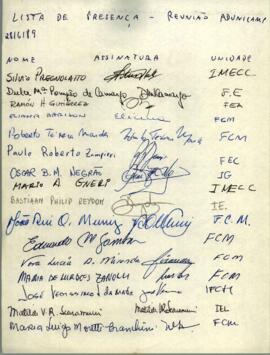 LISTA DE PRESENÇA - REUNIÃO ADUNICAMP
28/6/89
NOME ASSINATURA UNIDADE
SILVIO PREGNOLATTO IMECC
Dulce Mª Pompêo de Camargo F.E
RAMÓN H GUTIÉRREZ FEA
ELIANA FCM
Roberto Teixeira Mendes FCM
Paulo Roberto Zampieri FEC
OSCAR B.M. NEGRÃO IG
MARIO A GNERI IMECC
BASTIAAN PHILIP REYDON IE.
João Rui O. Muniz F.C.M.
FCM
Vera Lucia FCM
MARIA DE LURDES ZANOLLI FCM
JOSÉ IFCH
Matilde V.R. Scaramucci IEL
Maria Luiza Moretti Branchini FCM